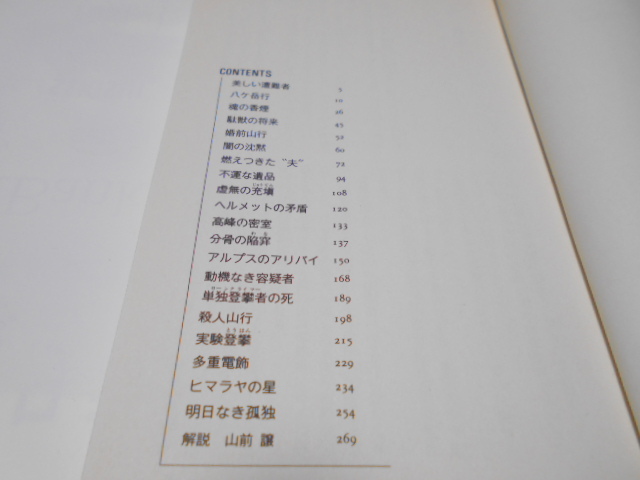 CONTENTS
美しい遭難者 5
八ケ岳行 10
魂の香煙 26
駄獣の将来 45
婚前山行 52
闇の沈黙 60
燃えつきた“夫” 72
不運な遺品 94
虚無の充塡 108
ヘルメットの矛盾 120
高峰の密室 133
分骨の陥穽 137
アルプスのアリバイ 150
動機なき容疑者 168
単独登攀者の死 189
殺人山行 198
実験登攀 215
多重電飾 229
ヒマラヤの星 234
明日なき孤独 254
解説 山前 譲 269